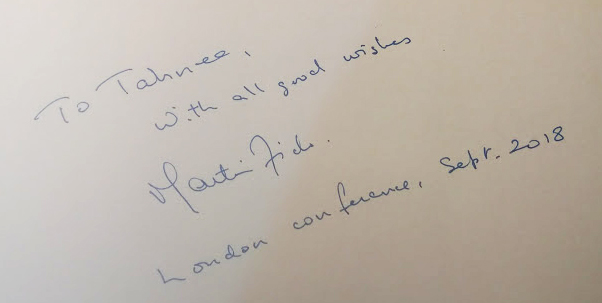 To Tahnee,
with all good wishes
Martin
London conference, Sept. 2018